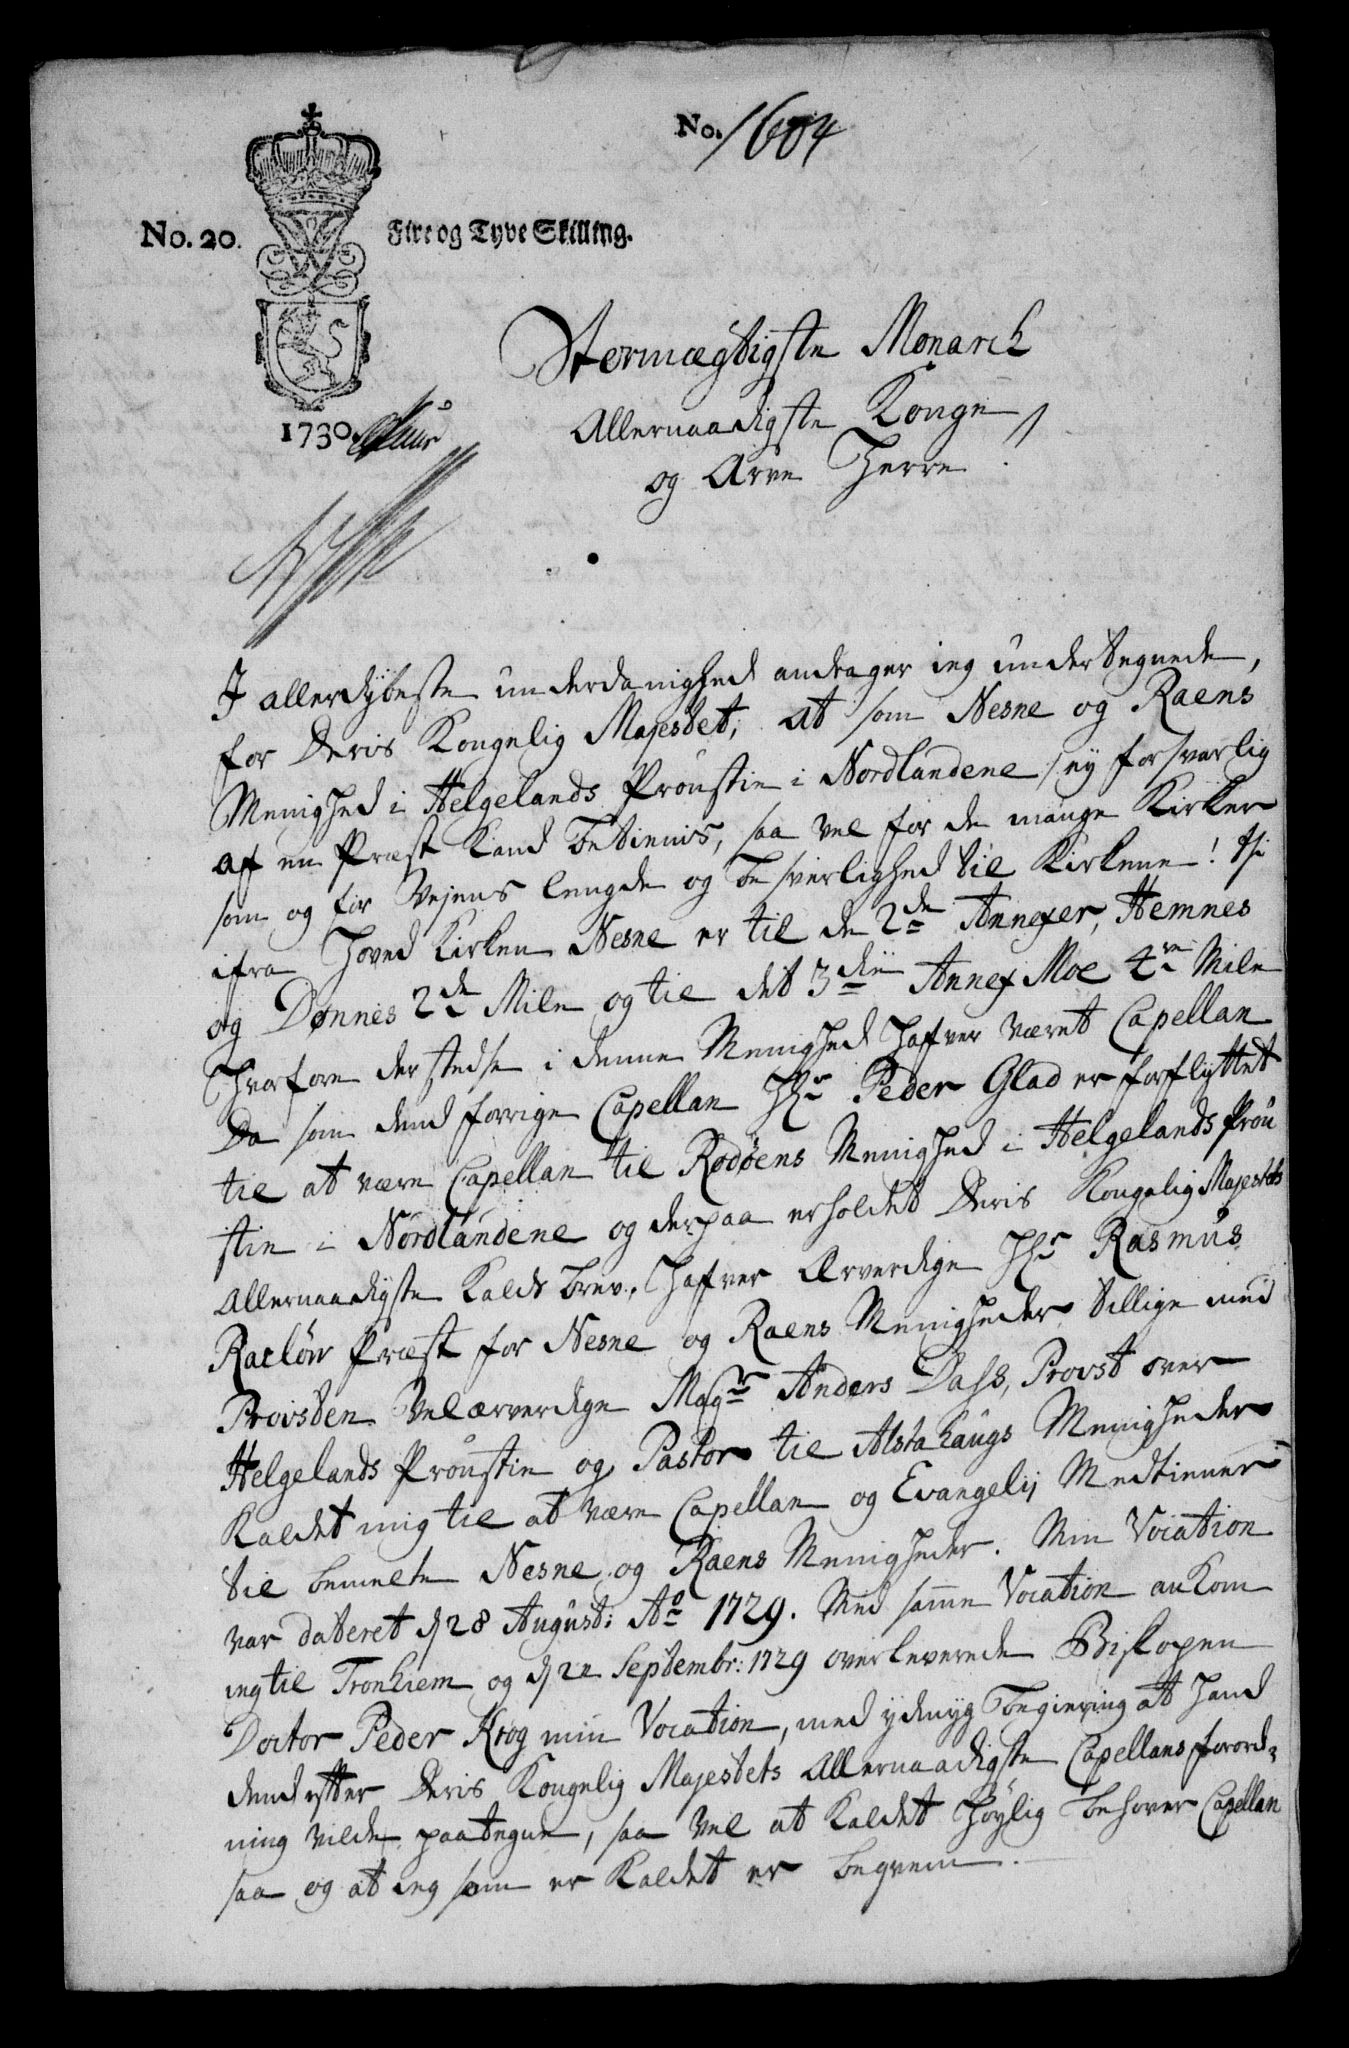 No. 1604
No. 20. Fire og Tyve Skilling.
1730
Stormægtigste Monarch
Allernaadigste Konge
og Arve Herre
I allerdybeste underdanighed andrager ieg undertegnede,
for Deris Kongelig Majestet, at som Nesne og Raens
Menighed i Helgelands Proustie i Nordlandene ey forsvarlig
af en Præst kand betienis, saa vel for de mange Kirker
som og for Vejens lengde og besverlighed til Kirkene! thi
ifra Hoved Kirken Nesne er til de 2de Annexer, Hemnes
og Dønnes 2de Mile og til det 3die Annex Moe 4re Mile
Hvorfore der stedse i denne Menighed hafver været Capellan
Da som dend forrige Capellan Hr Peder Glad er forflyttet
til at være Capellan til Rodøens Menighed i Helgelands Prou
stie i Nordlandene og derpaa erholdet Deris Kongelig Majestets
Allernaadigste Kalds brev. Hafver Ærverdige Hr Rasmus
Racløw Præst for Nesne og Raens Menigheder tillige med
Provsten Velærverdige Magr Anders Dass, Provst over
Helgelands Proustie og Pastor til Alstahaugs Menigheder
Kaldet mig til at være Capellan og Evangelij Medtiener
til bemelte Nesne og Raens Menigheder. Min Vocation
var dateret d 28 August: Ao 1729. Med samme Vocation ankom
ieg til Tronhiem og d 22 Septembr: 1729 overleverede Biskopen
Doctor Peder Krog min Vocation, med ydmyg begiering at hand
dend efter Deris Kongelig Majestets Allernaadigste Capellans forord-
ning vilde paategne, saa vel at Kaldet høylig behover Capellan
saa og at ieg som er Kaldet er beqvem.